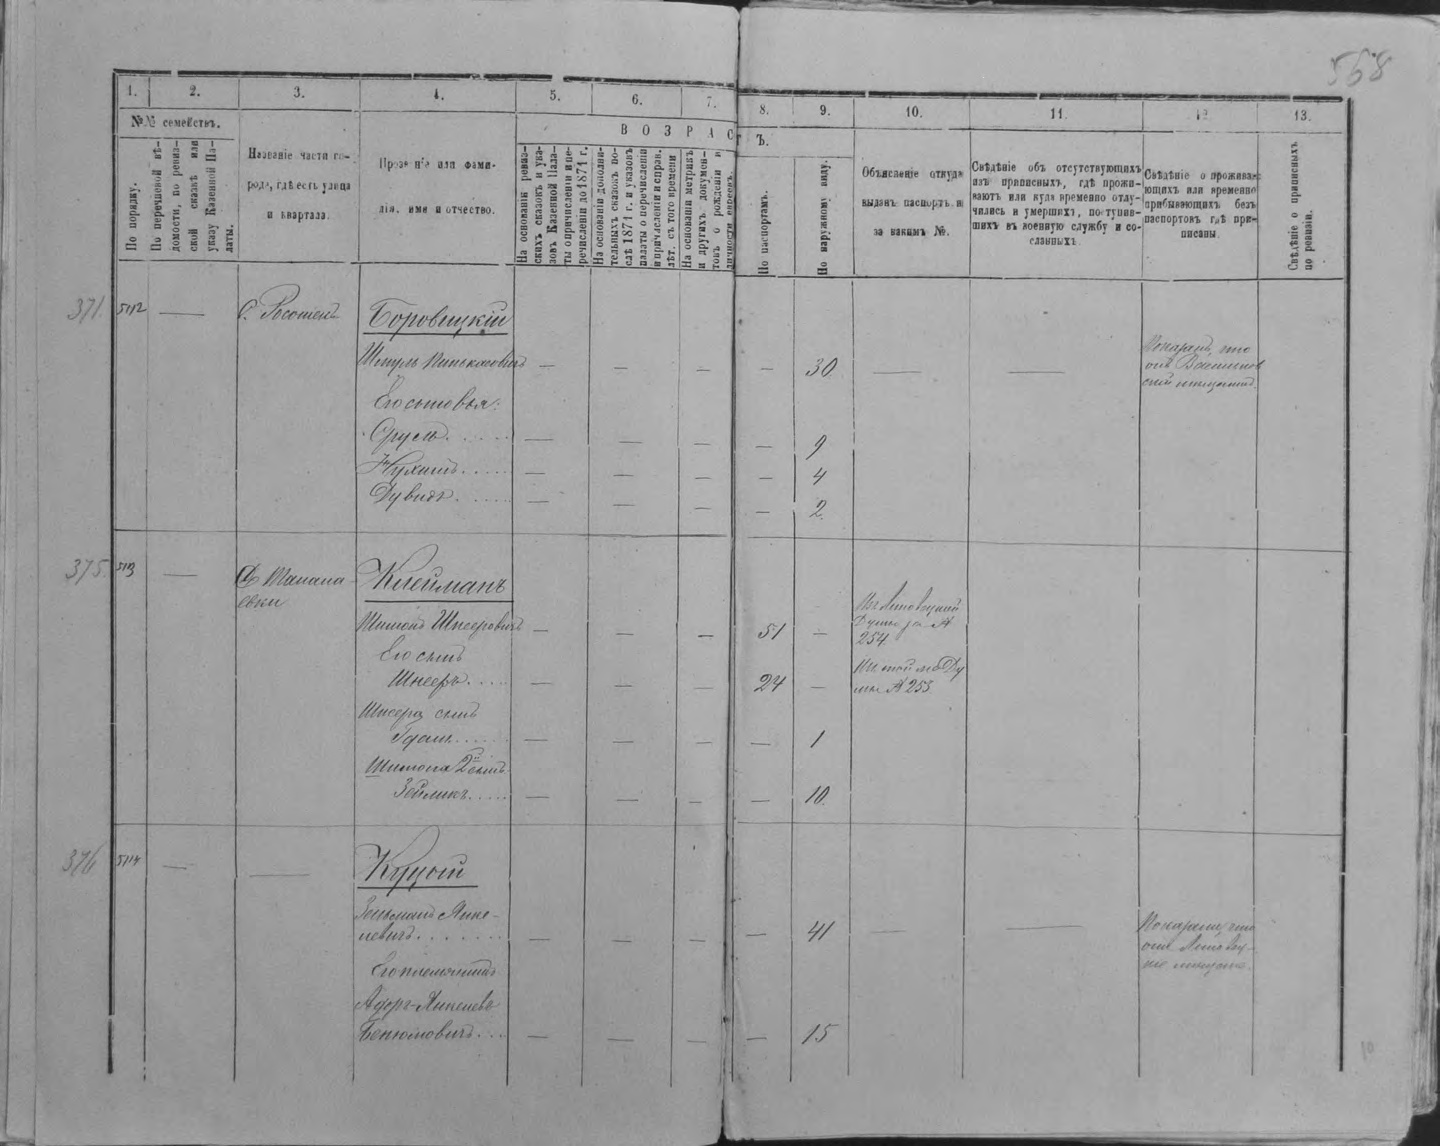 568
1.
2.
3.
4.
5.
6.
7.
8.
9.
10.
11.
12
13.
№№ семействъ.
По порядку.
По перечневой вѣ-
домости, по ревиз-
ской сказкѣ или
указу Казенной Па-
латы.
Названіе части го-
рода, гдѣ есть улица
и квартала.
Прозв ніе или фами-
лія, имя и отчество.
ВОЗРАС
ТЪ.
На основаніи ревиз-
скихъ сказокъ и ука-
зовъ Казенной Пала-
ты о причисленіи и пе-
речисленіи до 1871 г.
На основаніи дополни-
тельныхъ сказокъ по-
слѣ 1871 г. и указовъ
палаты о перечисленіи
и причисленіи и справ.
лѣт. съ того времени
На основаніи метрикъ
и другихъ докумен-
товъ о рожденіи и
личности евреевъ.
По паспортамъ.
По наружному виду.
Объясненіе откуда
выданъ паспортъ и
за какимъ №.
Свѣдѣніе объ отсутствующихъ
изъ приписныхъ, гдѣ прожи-
ваютъ или куда временно отлу-
чились и умершихъ, поступив-
шихъ въ военную службу и со-
сланныхъ.
Свѣдѣніе о прожива-
ющихъ или временно
прибывающихъ безъ
паспортовъ гдѣ при-
писаны.
Свѣдѣніе о приписныхъ
по ревизіи.
371. 5112 — Боровицкій
Пинькасовичъ — — — — 30 — —
Показалъ, что
онъ
Его сыновья:
Сруль — — — — 9
Нухимъ — — — — 4
Дувидъ — — — — 2
375. 5113 — Клейманъ
евки
Шимонъ Шнееровичъ — — — 51 —
254
Его сынъ
Шнееръ — — — 24 — Изъ той же Ду
мы № 253
Шнеера сынъ
— — — — 1
Шимона 2й сынъ
Зейликъ — — — — 10.
376 5114 — — Куцый
Янке-
левичъ — — — — 41 — —
Показалъ, что
онъ
Его племянникъ
Янкелевъ
Бенюмовичъ — — — — 15
10